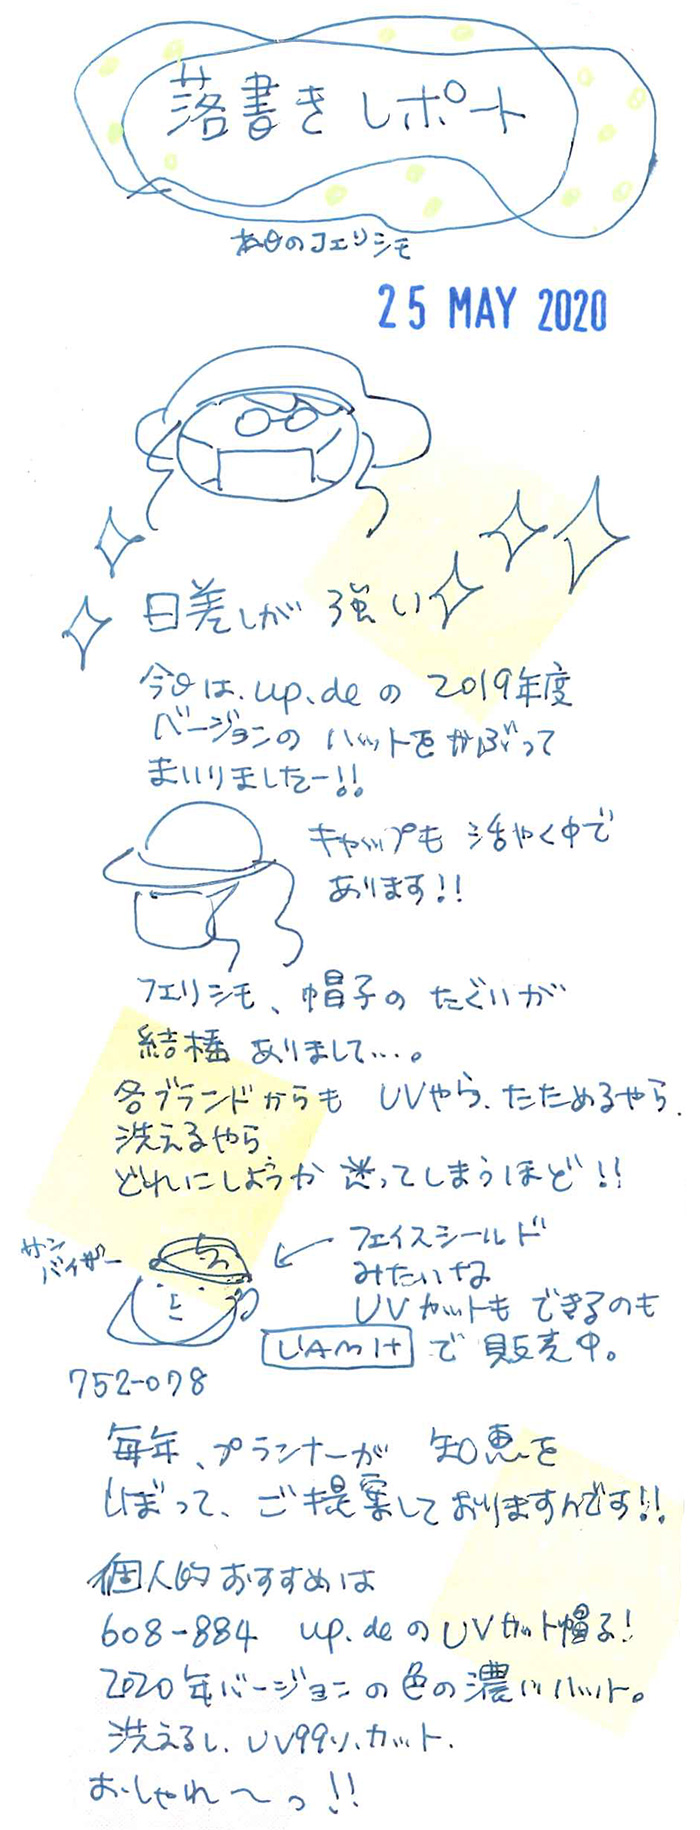 落書きレポート
本日のフェリシモ
25 MAY 2020
日差しが強い
今日は、up.deの2019年度
バージョンのハットをかぶって
まいりましたー!!
キャップも活やく中で
あります!!
フェリシモ、帽子のたぐいが
結構ありまして…。
各ブランドからも UVやら、たためるやら、
洗えるやら、
どれにしようか迷ってしまうほど!!
サンバイザー
フェイスシールド
みたいな
UVカットもできるのも
UAMItで販売中。
752-078
毎年、プランナーが知恵を
しぼって、ご提案しておりますんです!!
個人的おすすめは
608-884 up.deのUVカット帽子!
2020年バージョンの色の濃いハット。
洗えるし、UV99%カット、
おしゃれ〜っ!!